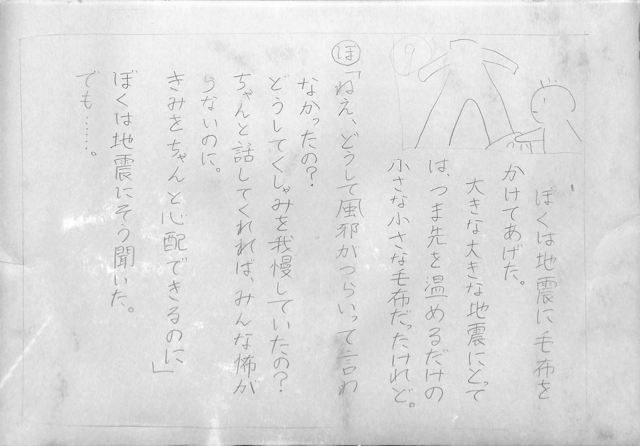 9
ぼくは地震に毛布を
かけてあげた。
大きな大きな地震にとって
は、つま先を温めるだけの
小さな小さな毛布だったけれど。
ほ「ねえ、どうして風邪がつらいって言わ
なかったの？
どうしてくしゃみを我慢していたの？
ちゃんと話してくれれば、みんな怖が
らないのに。
きみをちゃんと心配できるのに」
ぼくは地震にそう聞いた。
でも……。